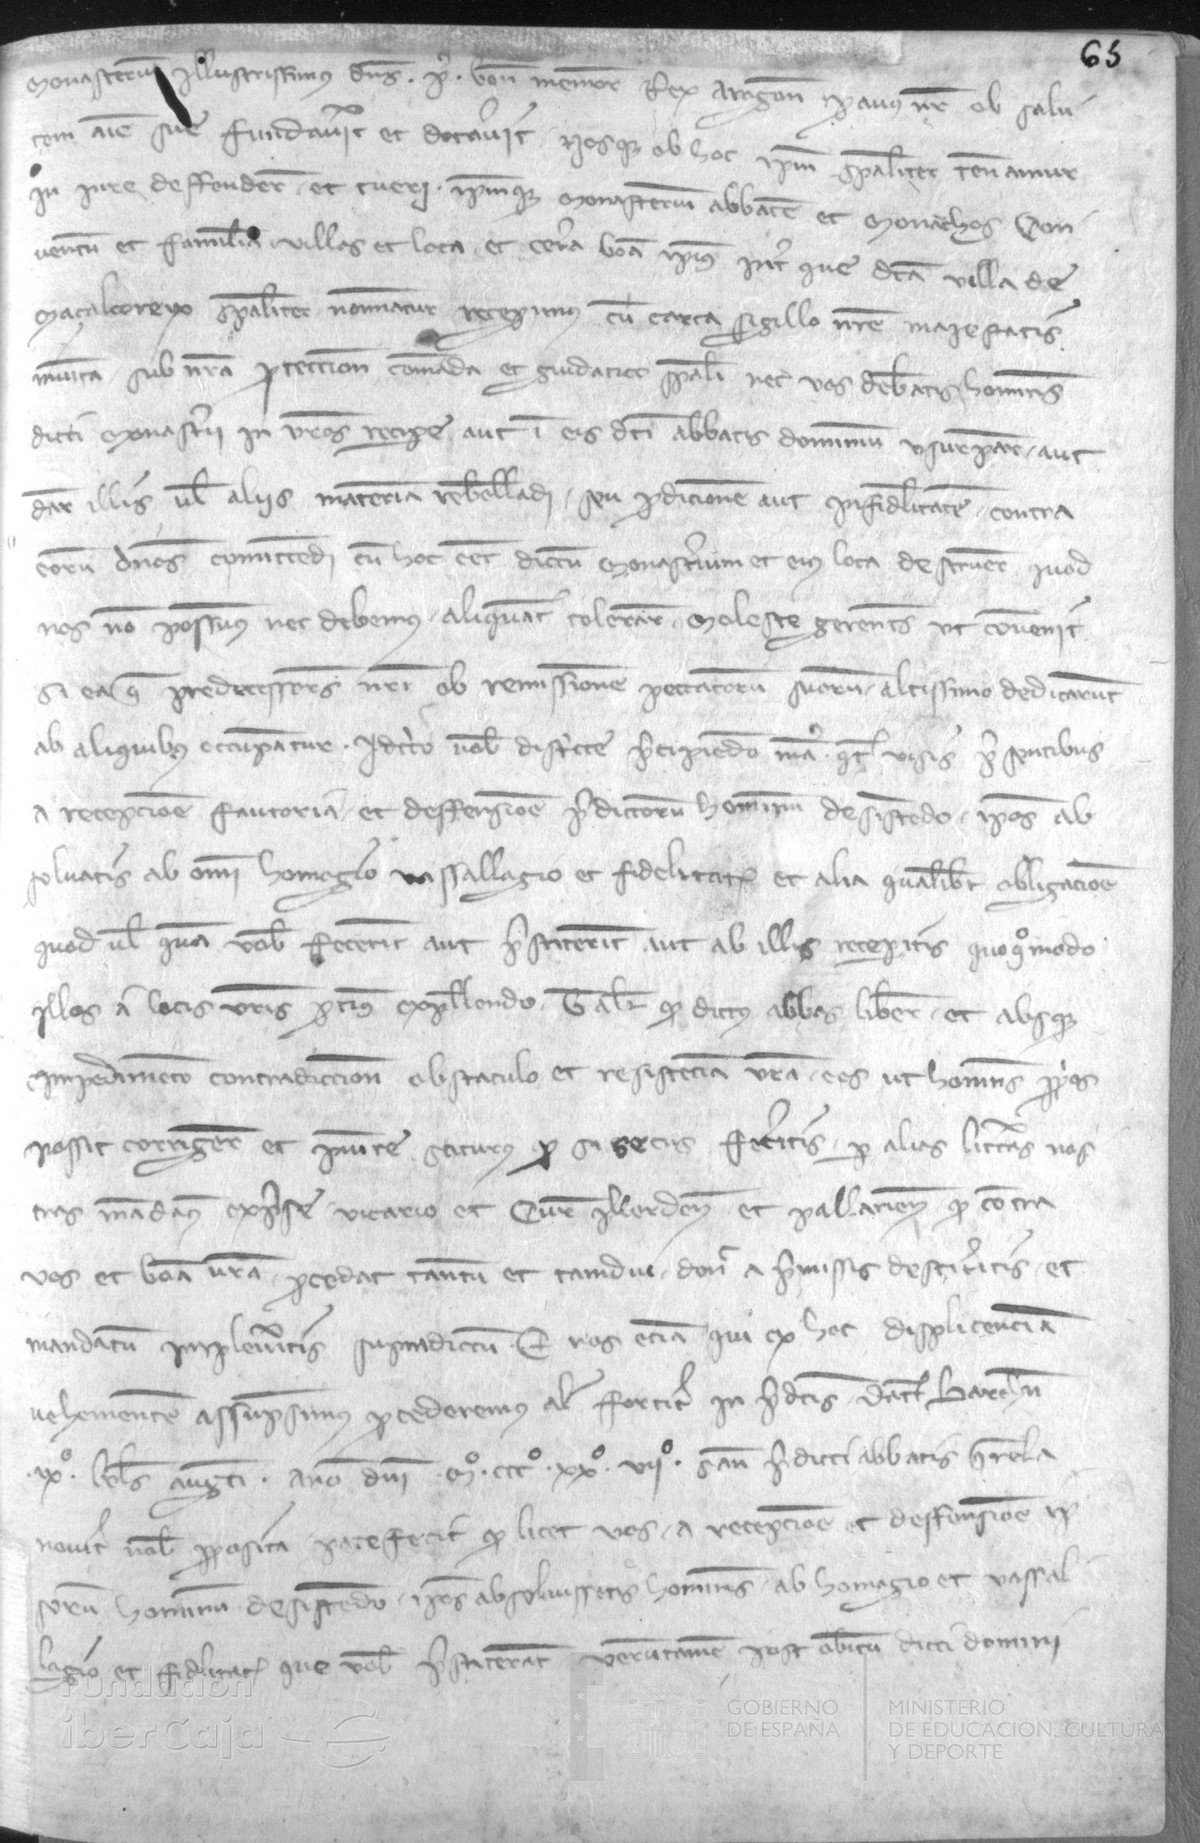 65
monasterium illustrissimus dns . P . bone memor Rex Aragon pavus nr ob salu
tem aie sue fundavit et dotavit . nosq ob hoc ipm spaliter teneamur
in iure deffender et tueri . ipmq monasterium abbate et monachos Con
ventu et familia villas et loca et cetera boa ipius int que dca villa de
macalcoreyg spaliter nominatur recepimus cu carta sigillo nre majestatis
munita sub nra proteccion comada et guidatico spali nec vos debeatis homines
dicti monasterii in vros recipe aut i eis dci abbatis dominium usurpar aut
dar illis vel aliis materia rebelladi , seu prodicione aut infidelitate contra
eoru dnos comittedi cu hoc eet dictu monasterium et eius loca destruer quod
nos no possumus nec debemus aliquat tolerar . moleste gerents ut convenit
si ea q predecessors nri ob remissione peccatoru suoru altissimo dedicarut
ab aliquibus occupatur . Idcirco vob districte precipiedo ma . qt visis presentibus
a recepcioe fautoria et deffensioe predictoru hominum desistedo ipos ab
solvatis ab omi homagio vassallagio et fidelitate et alia qualibt obligacioe
quod vel qua vob fecerit aut prestiterit aut ab illis recepistis quoquomodo
illos a locis vris procius expellendo . Talr q dictus abbas liber et absq
impedimeto contradiccion obstaculo et resistecia vra eos ut homines prop̃os
possit corriger et punire sciturus q si secus feceritis p alias litteras nos
tras mandam expresse vicario et Cur illerden et pallarien q contra
vos et boa vra procedat tantu et tamdiu donec a premissis destiteritis et
mandatu impleveritis supradictum Et nos ecia qui ex hoc displicencia
vehemente assupsimus procederemus alr fortit in predcis . Dat Barchn
.ixº. kls augti . ano dni . mº. cccº. xxº. viiº. San predicti abbatis querela
novit nob proposita patefecit q licet vos a recepcioe et deffensioe ip
soru hominum desistedo ipos absolvissetis homines ab homagio et vassal
lagio et fidelitate que vob prestiterat verutame post obitu dicti domini
Fundación
iberCaja
GOBIERNO
DE ESPAÑA
MINISTERIO
DE EDUCACIÓN, CULTURA
Y DEPORTE